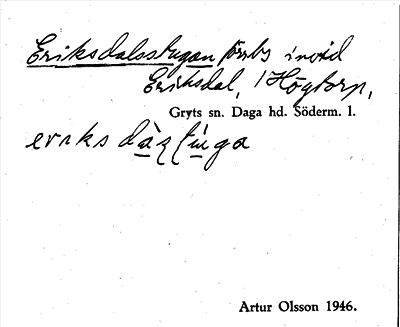 Eriksdalsstugan förrbs invid
Eriksdal, / Högtorp,
Gryts sn. Daga hd. Söderm. l.
Artur Olsson 1946.